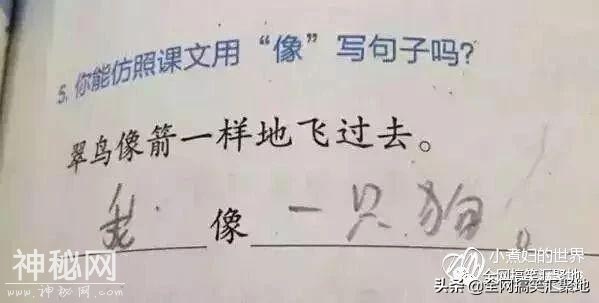 5. 你能仿照课文用“像”写句子吗？
翠鸟像箭一样地飞过去。
我 像 一只狗。
神秘网
www.shenmiw.com
小煮妇的世界
全网搞笑汇聚地
头条@全网搞笑汇聚地